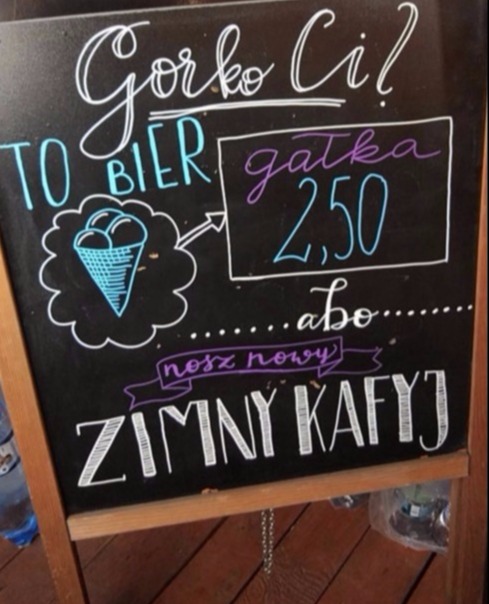 Gorko Ci?
TO BIER
gałka
2,50
.......abo........
nosz nowy
ZIMNY KAFYJ